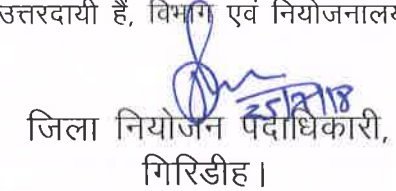 उत्तरदायी हैं, विभाग एवं नियोजनालय
25/7/18
जिला नियोजन पदाधिकारी,
गिरिडीह।